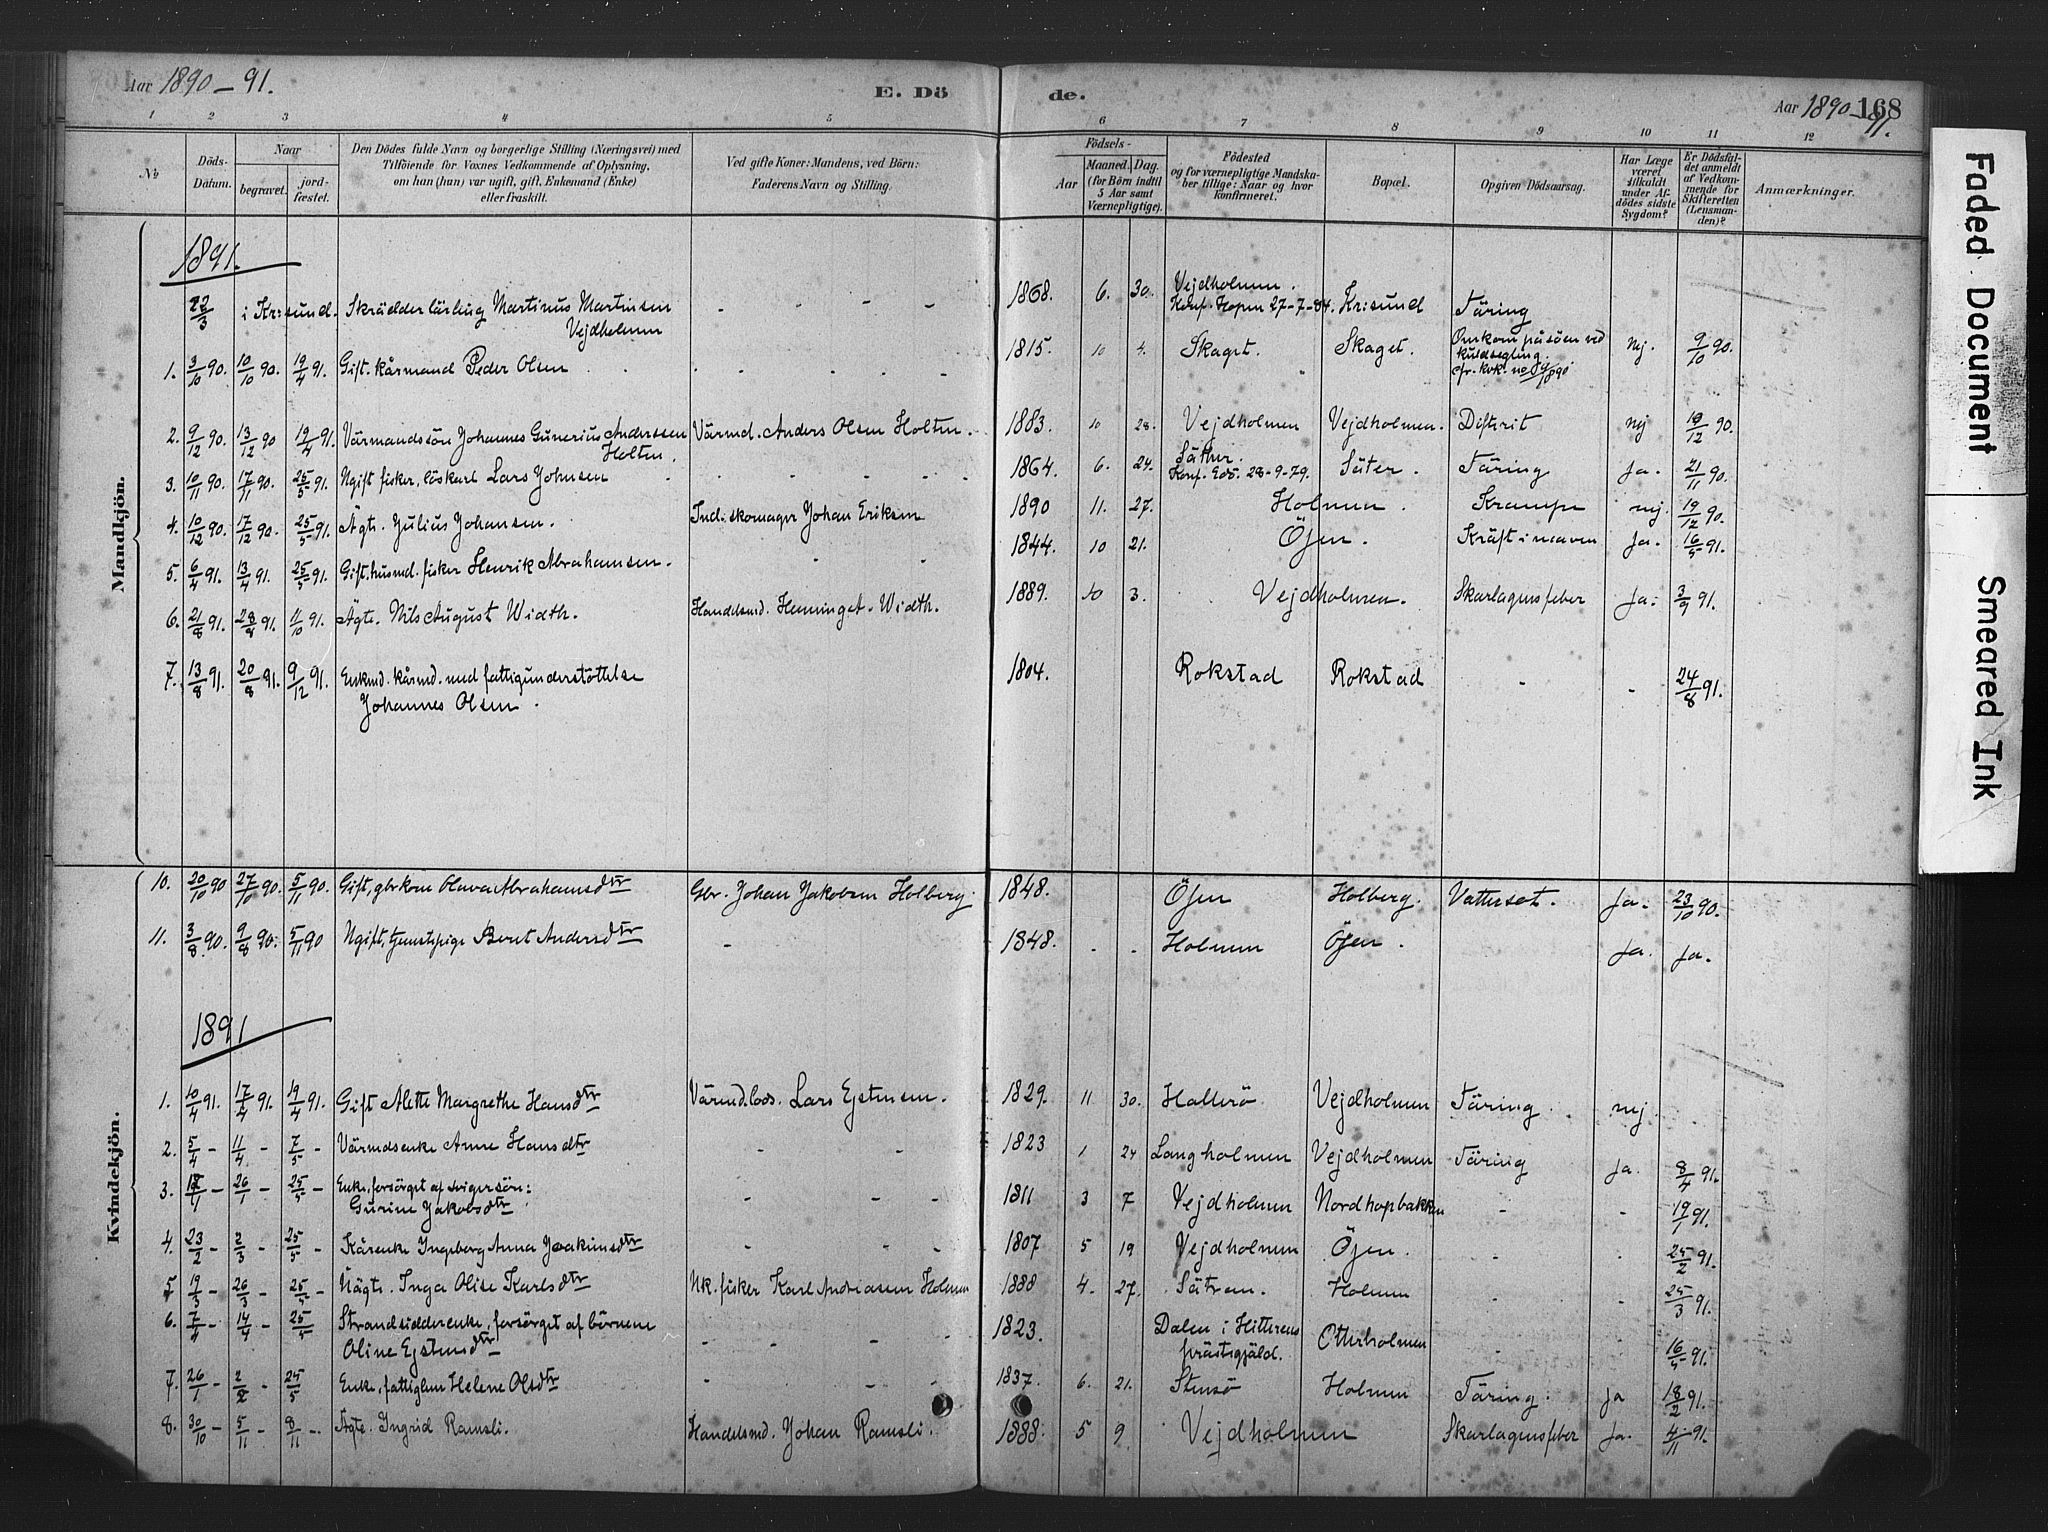 Aar 1890-91.
E. Dö de.
Aar 1890-91. 168
1 2 3 4 5 6 7 8 9 10 11 12
No
Döds-Datum.
Naar begravet. jordfæstet.
Den Dödes fulde Navn og borgerlige Stilling (Næringsvei) med
Tilföiende for Voxnes Vedkommende af Oplysning,
om han (hun) var ugift, gift, Enkemand (Enke)
eller fraskilt.
Ved gifte Koner: Mandens, ved Börn:
Faderens Navn og Stilling.
Födsels-
Aar Maaned. Dag.
(for Börn indtil
5 Aar samt
Værnepligtige).
Födested
og for værnepligtige Mandska-
ber tillige: Naar og hvor
konfirmeret.
Bopæl.
Opgiven Dödsaarsag.
Har Læge
været
tilkaldt
under Af-
dödes sidste
Sygdom?
Er Dödsfal-
det anmeldt
af Vedkom-
mende for
Skifteretten
(Lensman-
den)?
Anmærkninger.
Mandkjön.
1891.
22/3 i Kr:sund. Skrädderlärling Martinus Martinsen Vejdholmen - - - - 1868. 6. 30. Vejdholmen. Konf. Kopen 27-7-84. Kr:sund Täring
1. 3/10 90. 10/10 90. 19/4 91. Gift. kårmand Peder Olsen 1815. 10 4. Skaget. Skaget. Omkom på söen ved kuldsegling. cfr. kvk. no 1890 nej. 9/10 90.
2. 9/12 90. 13/12 90 19/4 91. Värmandssön Johannes Gunerius Anderssen Holten. Värmd. Anders Olsen Holten. 1883. 10 28. Vejdholmen Vejdholmen. Difterit nej 19/12 90.
3. 10/11 90. 17/11 90. 25/5 91. Ugift fisker, löskarl Lars Johnsen 1864. 6. 24. Säther. Konf. Edö. 28-9-79. Säter. Täring Ja. 21/11 90.
4. 10/12 90. 17/12 90. 25/5 91. Ägte. Julius Johansen. Ind. skomager Johan Eriksen 1890 11. 27. Holmen. Krampe nej. 19/12 90.
5. 6/4 91. 13/4 91. 25/5 91. Gift. husmd. fisker Henrik Abrahamsen. 1844. 10 21. Öjen. Kräft i maven Ja. 16/5 91.
6. 21/8 91. 28/8 91. 11/10 91. Ägte. Nils August Width. Handelsmd. Heminget. Width. 1889. 10 3. Vejdholmen. Skarlagensfeber Ja. 3/9 91.
7. 13/8 91. 20/8 91. 9/12 91. Enkmd. kårmd. med fattigunderstöttelse Johannes Olsen. 1804. Rokstad Rokstad - - 24/8 91.
Kvindekjön.
10. 20/10 90 27/10 90. 5/11 90. Gift, gbrkone Olava Abrahamsdtr Gbr. Johan Jakobsen Holberg 1848. Öjen Holberg. Vattersot. Ja. 23/10 90.
11. 3/8 90. 9/8 90. 5/11 90 Ugift, tjenstepige Beret Andersdtr - 1848. - - Holmen Öjen. Ja. Ja.
1891
1. 10/4 91. 17/4 91. 19/4 91. Gift Alette Margrethe Hansdtr Värmd. lods. Lars Ejstensen. 1829. 11 30. Hallerö Vejdholmen Täring. nej.
2. 5/4 - 11/4 - 7/5 - Värmdsenke Anne Hansdtr - - 1823 1 24 Langholmen Vejdholmen Täring Ja. 8/4 91.
3. 17/1 - 26/1 - 25/5 - Enke, forsörget af svigersön: Gurine Jakobsdtr - - 1811 3 7 Vejdholmen Nordhopbakken - - 19/1 91.
4. 23/2 - 2/3 - 25/5 - Kårenke Ingeborg Anna Joakimsdtr - - - 1807 5 19 Vejdholmen Öjen. - - 25/2 91.
5 19/3 - 26/3 - 25/5 - Uägte. Inga Olise Karlsdtr Uk. fisker Karl Andreasen Holmen 1888 4. 27. Sätran. Holmen - - 25/3 91.
6. 7/4 - 14/4 - 25/5 Strandsidderenke, forsörget af börnene Oline Ejstensdtr - - - - 1823. Dalen i Hitterens prästegjäld. Otterholmen - 16/5 91.
7. 26/1 - 2/2 - 25/5 Enke, fattiglem Helene Olsdtr - - - 1837. 6. 21. Stensö Holmen Täring. Ja 18/2 91.
8. 30/10 - 5/11 - 8/11 -. Ägte. Ingrid Ramsli. Handelsmd. Johan Ramsli. 1888. 5 9. Vejdholmen Skarlagensfeber Ja. 4/11 91.
Faded Document Smeared Ink